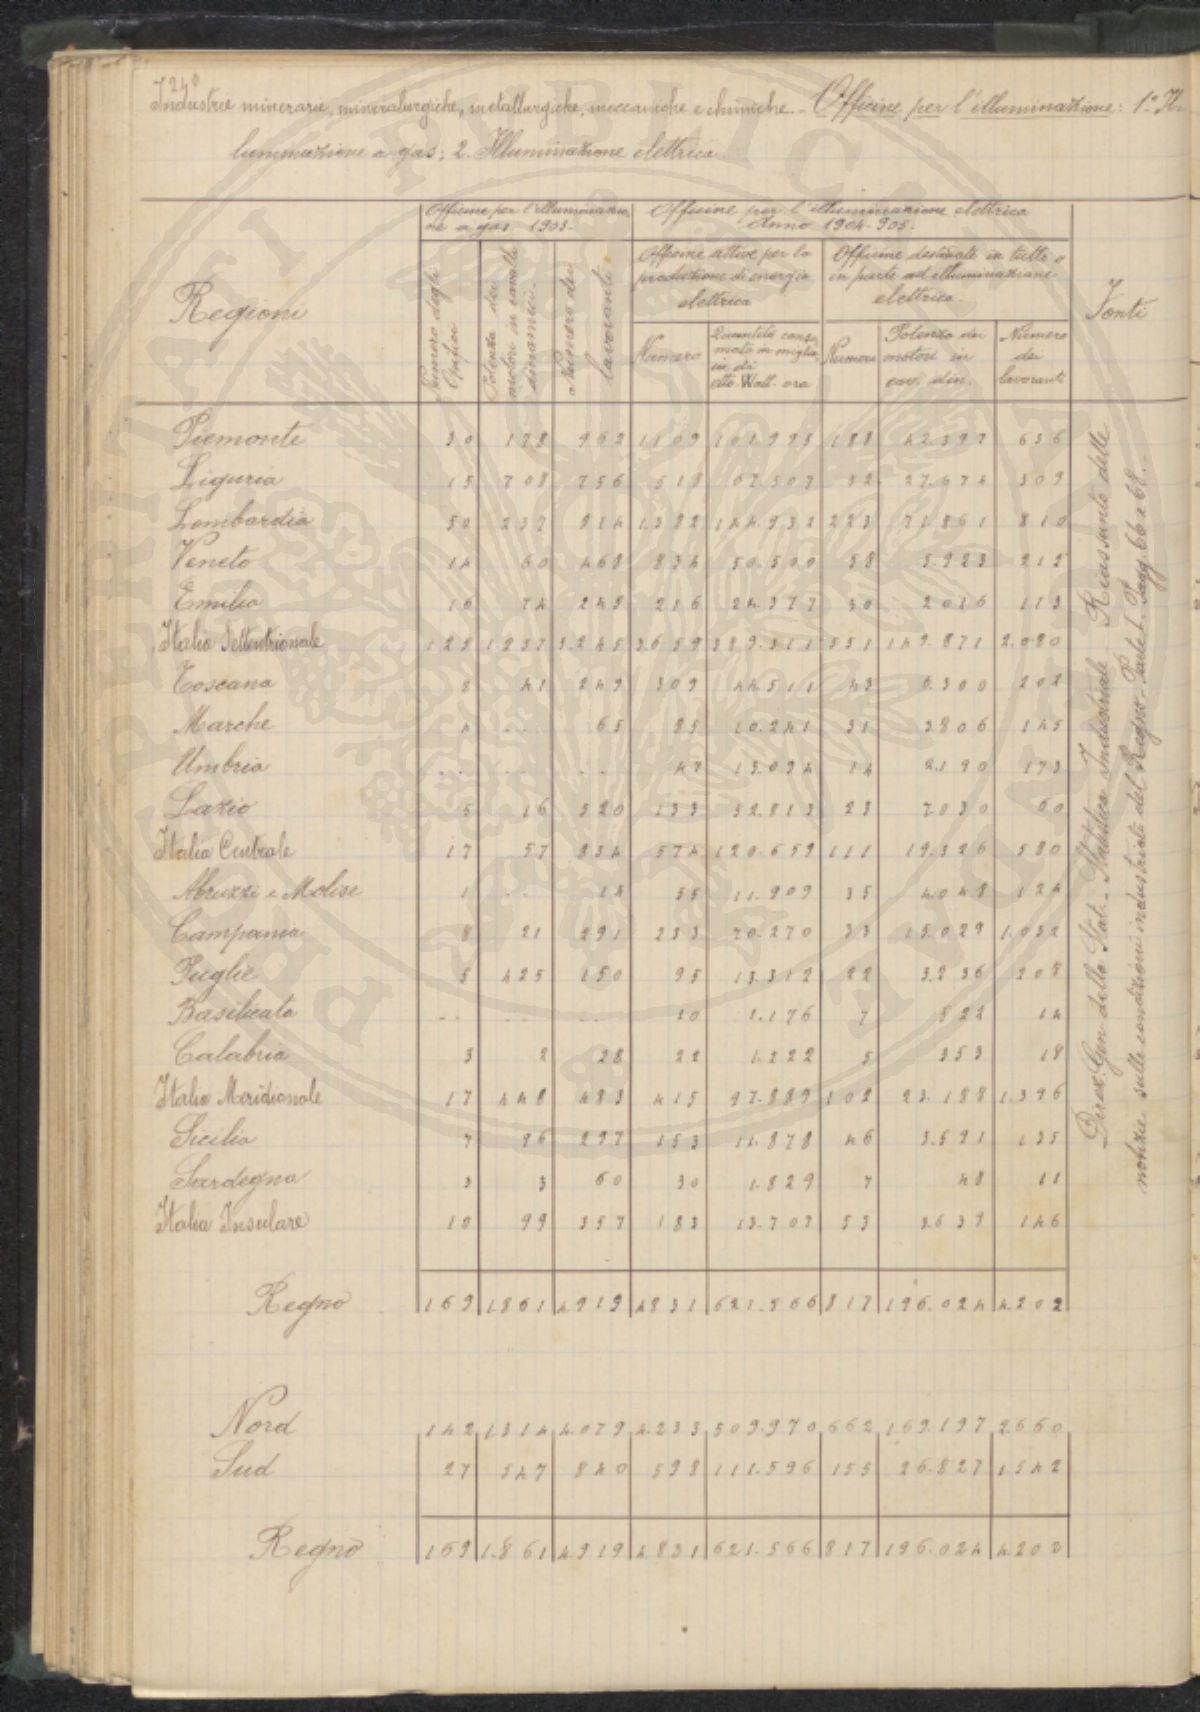 240
Industrie minerarie, mineralurgiche, metallurgiche, meccaniche e chimiche. - Officine per l'illuminazione: 1.° Il-
luminazione a gas; 2. Illuminazione elettrica
Regioni
Officine per l'illuminazio-
ne a gas. 1903.
Numero degli Opifici
Potenza dei motori in cavalli dinamici.
Numero dei lavoranti
Officine per l'illuminazione elettrica
Anno 1904-905.
Officine attive per la produzione di energia elettrica
Numero
Quantità consumata in miglia di etto-Watt-ora
Officine destinate in tutto o in parte ad illuminazione elettrica
Numero
Potenza dei motori in cav. din.
Numero dei lavoranti
Fonti
Piemonte 30 178 962 1109 101.995 188 42.397 636
Liguria 15 708 756 518 67.507 32 27.674 309
Lombardia 50 237 914 1.382 144.932 223 71.861 810
Veneto 14 60 468 834 50.500 58 5.923 212
Emilia 16 74 248 216 24.377 50 2016 113
Italia Settentrionale 125 1257 3.245 3659 389.311 551 149.871 2.080
Toscana 8 41 249 309 44.511 43 6.300 202
Marche 4 .. 65 85 10.241 31 3806 145
Umbria .. .. .. 47 13.094 14 2.190 173
Lazio 5 16 520 133 52.813 23 7030 60
Italia Centrale 17 57 834 574 120.659 111 19.326 580
Abruzzi e Molise 1 .. 14 55 11.909 35 4.048 124
Campania 8 21 291 233 70.270 33 15.029 1.032
Puglie 5 425 150 95 13.312 22 3.236 208
Basilicata .. .. .. 10 1.176 7 522 14
Calabria 3 2 28 22 1.222 5 353 18
Italia Meridionale 17 448 483 415 97.889 102 23.188 1.396
Sicilia 7 96 297 153 11.878 46 3.591 135
Sardegna 3 3 60 30 1.829 7 48 11
Italia Insulare 10 99 357 183 13.707 53 3.639 146
Regno 169 1.861 4.919 4831 621.566 817 196.024 4.202
Nord 142 1.314 4.079 4.233 509.970 662 169.197 2.660
Sud 27 547 840 598 111.596 155 26.827 1.542
Regno 169 1.861 4.919 4.831 621.566 817 196.024 4.202
Direz. Gen. della Stat. - Statistica Industriale - Riassunto delle
notizie sulle condizioni industriali del Regno - Parte I. Pagg. 66 e 68.